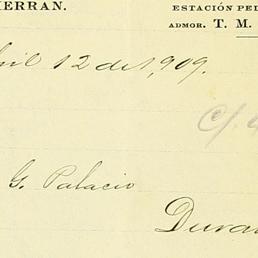 ERRAN.
ESTACIÓN PED
ADMOR. T. M.
il 12 de 1,909.
C/.
G. Palacio
Duran